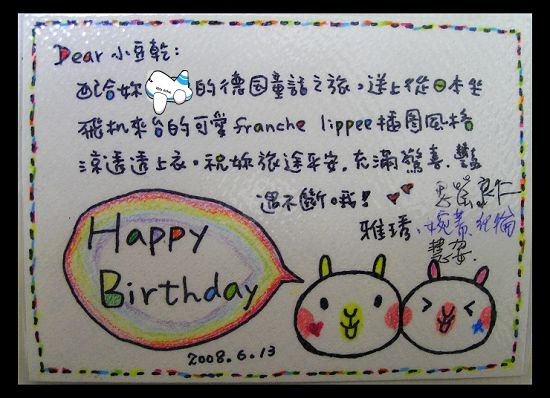 Dear 小豆乾:
配合妳的德国童話之旅,送上從日本坐
飛机來台的可愛franche lippee插图風格
涼透透上衣。祝妳旅途平安,充滿驚喜、豔
遇不斷哦!
雅琇、
慧姿.
Happy
Birthday
2008.6.13